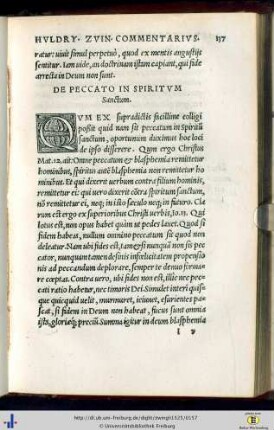 HVLDRY. ZVIN. COMMENTARIVS. 137
ratur: uiuit simul perpetuò, quod ex mentis angustijs
sentitur. Iam uide, an doctrinam istam capiant, qui fide
arrecta in Deum non sunt.
DE PECCATO IN SPIRITVM
Sanctum.
CVM EX supradictis facillime colligi
possit quid nam sit peccatum in spiritū
sanctum, oportunum duximus hoc loci
de ipso disserere. Quum ergo Christus
Mat. 12. ait: Omne peccatum & blasphemia remittetur
hominibus, spiritus autē blasphemia non remittetur ho
minibus. Et qui dixerit uerbum contra filium hominis,
remittetur ei: qui uero dixerit cōtra spiritum sanctum,
nō remittetur ei, neq; in isto sæculo neq; in futuro. Cla
rum est ergo ex superioribus Christi uerbis, Io. 13. Qui
lotus est, non opus habet quàm ut pedes lauet. Quod si
fidem habeas, nullum omnino peccatum sit quod non
deleatur. Nam ubi fides est, tametsi nunquā non sis pec
cator, nunquam tamen desinis infoelicitatem propensio
nis ad peccandum deplorare, semper te denuo formare
cœptas. Contra uero, ubi fides non est, illic nec pec
cati ratio habetur, nec timoris Dei. Simulet interi quis
que quicquid uelit, murmuret, ieiunet, esurientes pa
scat, si fidem in Deum non habeat, fucus sunt omnia
ista, gloriæq; precium. Summa igitur in deum blasphemia
I v
http://dl.ub.uni-freiburg.de/diglit/zwingli1525/0157
© Universitätsbibliothek Freiburg